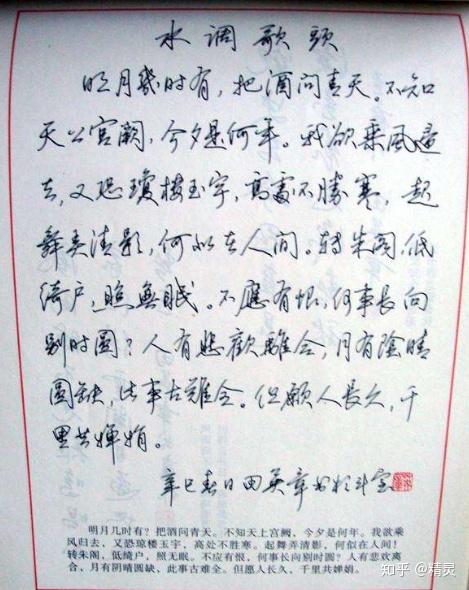 水调歌頭
明月幾时有，把酒问青天。不知
天上宫阙，今夕是何年。我欲乘風歸
去，又恐瓊樓玉宇，高處不勝寒，起
舞弄清影，何似在人间。转朱阁，低
绮户，照無眠。不應有恨，何事長向
别时圆？人有悲歡離合，月有陰晴
圆缺，此事古難全。但願人長久，千
里共婵娟。
辛巳春日田英章书於斗室
明月几时有？把酒问青天。不知天上宫阙，今夕是何年。我欲乘
风归去，又恐琼楼玉宇，高处不胜寒。起舞弄清影，何似在人间！
转朱阁，低绮户，照无眠。不应有恨，何事长向别时圆？人有悲欢离
合，月有阴晴圆缺，此事古难全。但愿人长久，千里共婵娟。
知乎 @精灵